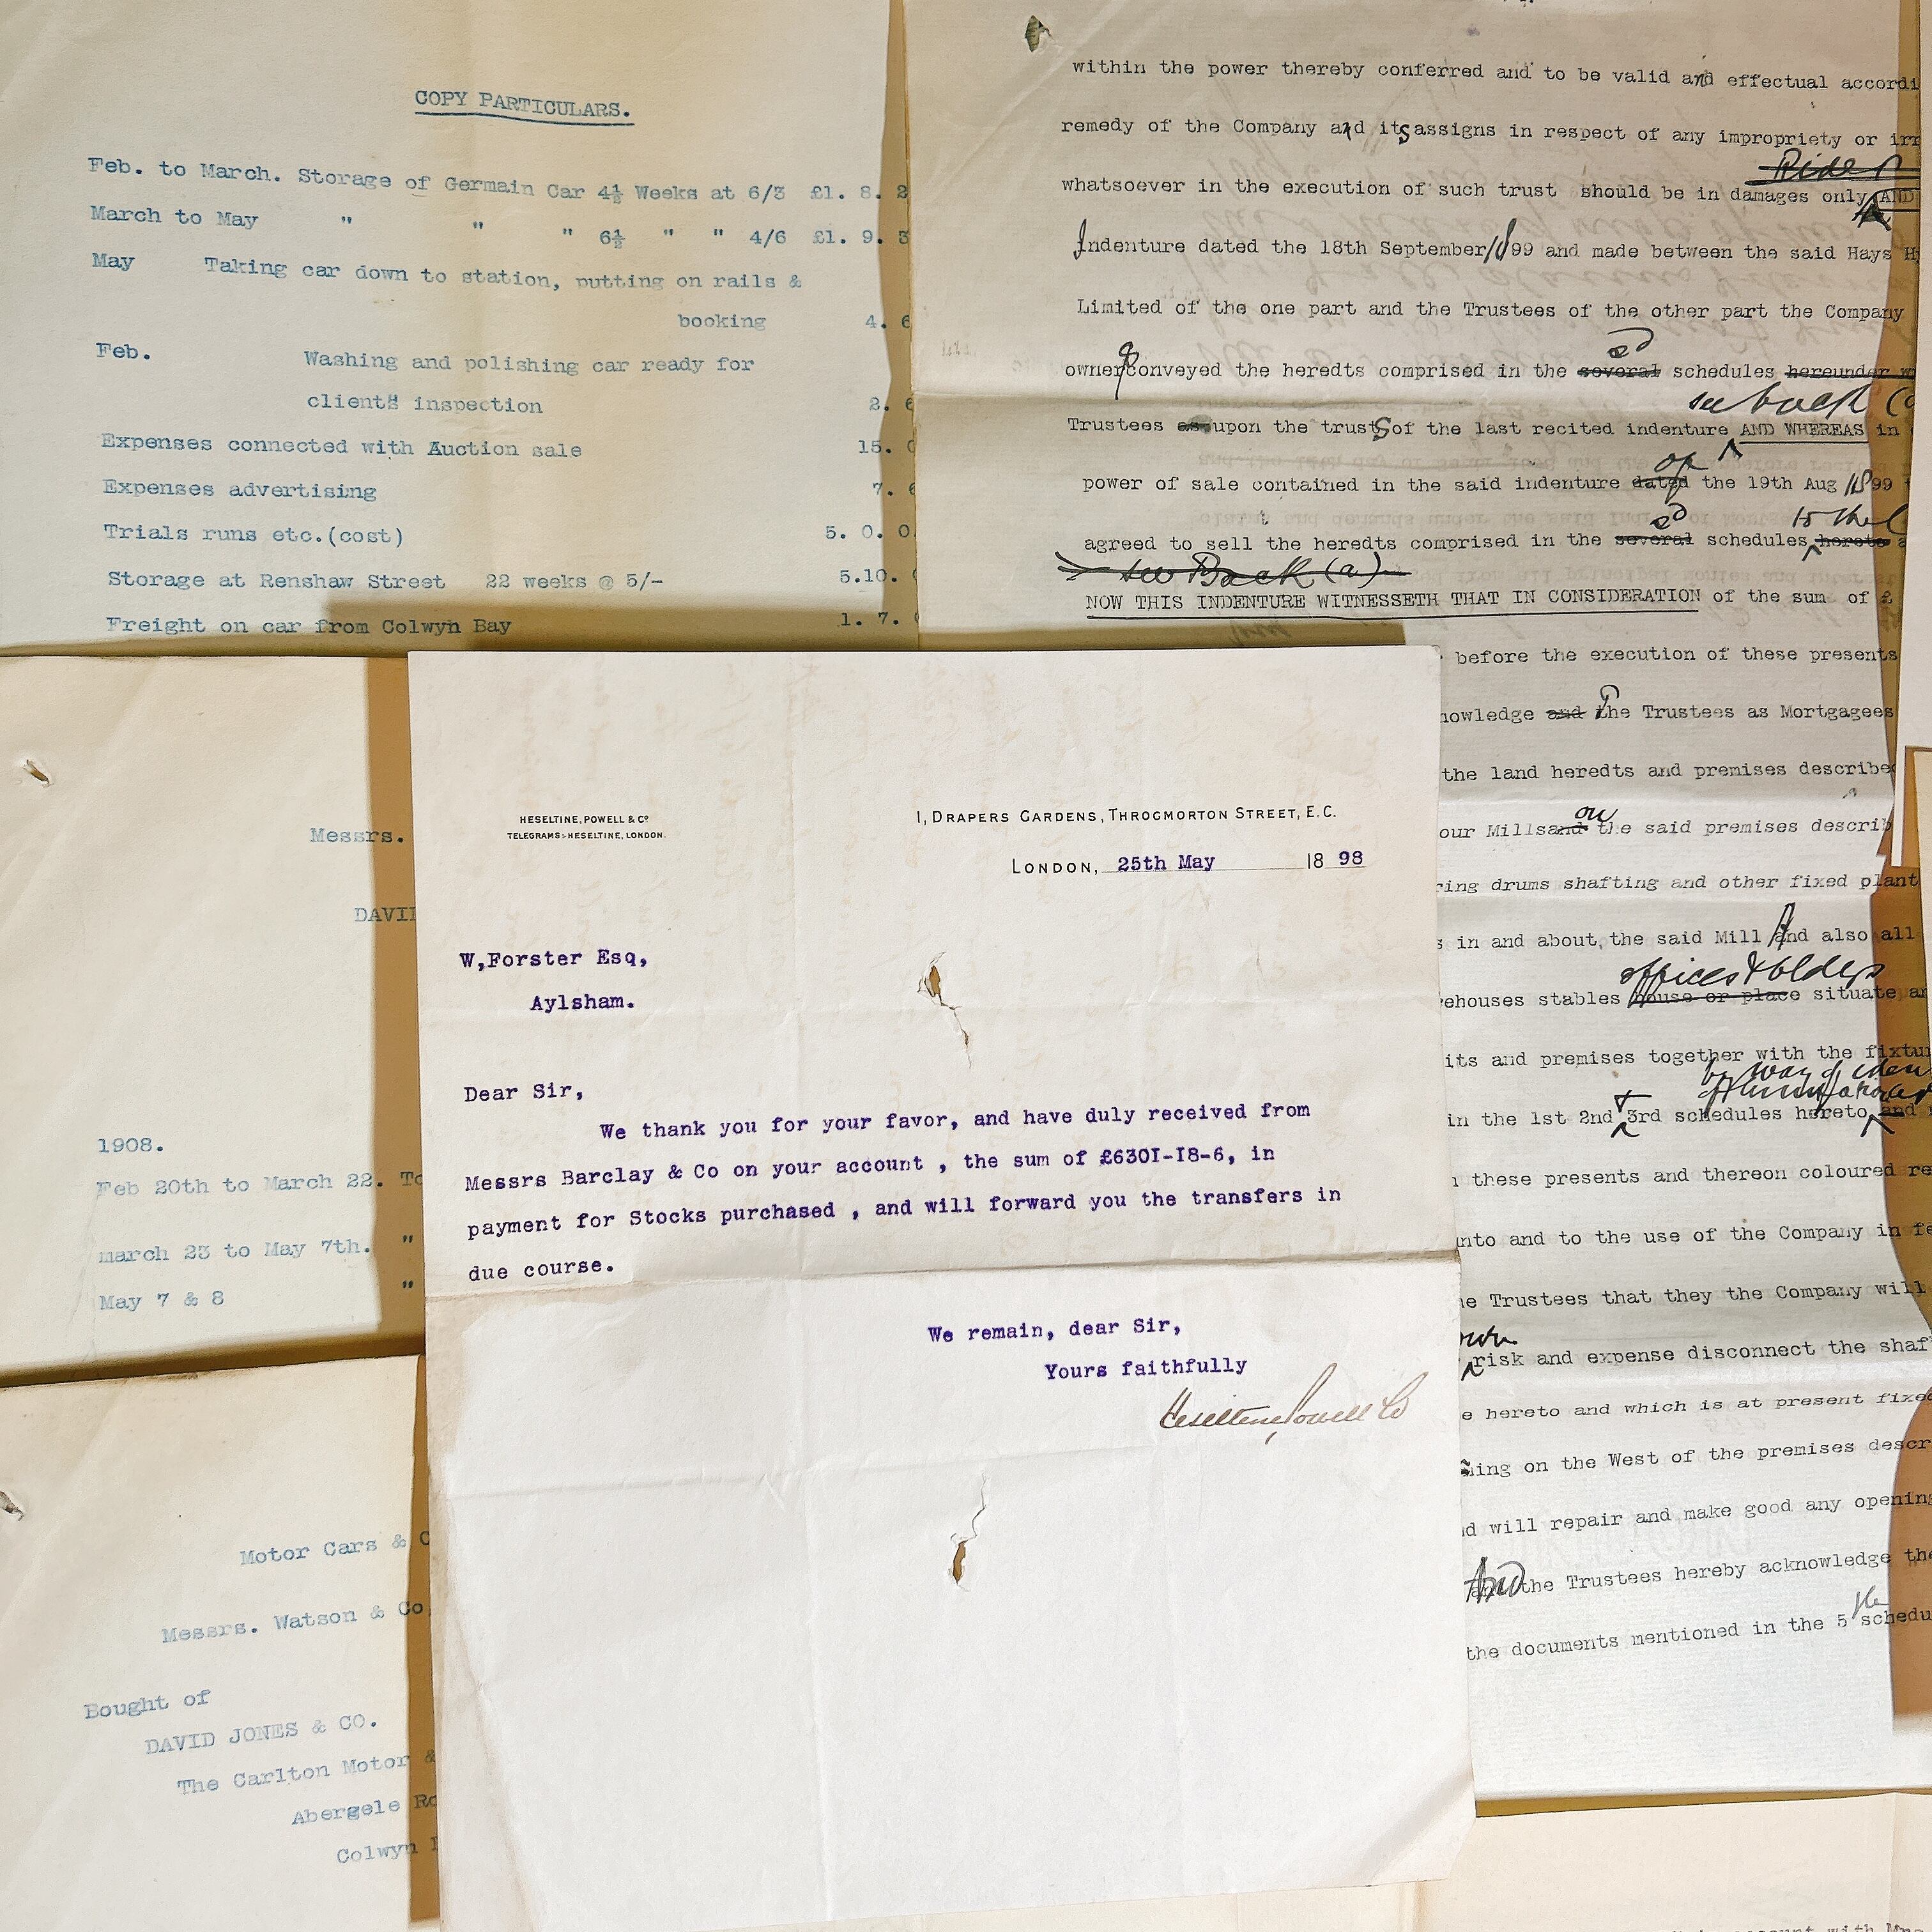 COPY PARTICULARS.
Feb. to March. Storage of Germain Car 4½ Weeks at 6/3 £1. 8. 2
March to May " " " 6½ " " 4/6 £1. 9. 3
May Taking car down to station, putting on rails &
booking 4. 6
Feb. Washing and polishing car ready for
client" inspection 2. 6
Expenses connected with Auction sale 15. 0
Expenses advertising 7. 6
Trials runs etc.(cost) 5. 0. 0
Storage at Renshaw Street 22 weeks @ 5/- 5.10.
Freight on car from Colwyn Bay 1. 7.
within the power thereby conferred and to be valid and effectual accordi
remedy of the Company and its assigns in respect of any impropriety or irr
Rider
whatsoever in the execution of such trust should be in damages only AND
Indenture dated the 18th September 1899 and made between the said Hays H
Limited of the one part and the Trustees of the other part the Company
sd
owner conveyed the heredts comprised in the several schedules hereunder w
see back (
Trustees as upon the trusts of the last recited indenture AND WHEREAS in
of
power of sale contained in the said indenture dated the 19th Aug 1899
sd to the
agreed to sell the heredts comprised in the several schedules hereto
see Back (a)
NOW THIS INDENTURE WITNESSETH THAT IN CONSIDERATION of the sum of £
before the execution of these presents
nowledge and The Trustees as Mortgagees
the land heredts and premises describe
on
our Mills and the said premises describ
ring drums shafting and other fixed plant
s in and about the said Mill And also all
offices & bldgs
ehouses stables house or place situate an
its and premises together with the fixtur
by way of
in the 1st 2nd & 3rd schedules hereto and
these presents and thereon coloured re
nto and to the use of the Company in fe
he Trustees that they the Company will
own
risk and expense disconnect the shaf
e hereto and which is at present fixed
ing on the West of the premises descr
d will repair and make good any opening
And the Trustees hereby acknowledge the
the documents mentioned in the 5th schedu
Messrs.
DAVID
1908.
Feb 20th to March 22. To
march 23 to May 7th. "
May 7 & 8 "
Motor Cars & C
Messrs. Watson & Co
Bought of
DAVID JONES & CO.
The Carlton Motor &
Abergele Ro
Colwyn B
HESELTINE, POWELL & Cº
TELEGRAMS:-HESELTINE, LONDON.
1, DRAPERS GARDENS, THROGMORTON STREET, E.C.
LONDON, 25th May 1898
W,Forster Esq,
Aylsham.
Dear Sir,
We thank you for your favor, and have duly received from
Messrs Barclay & Co on your account , the sum of £630I-I8-6, in
payment for Stocks purchased , and will forward you the transfers in
due course.
We remain, dear Sir,
Yours faithfully
Heseltine, Powell & Co
account with